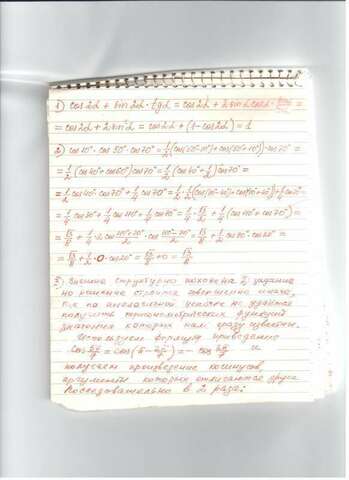 1) cos2α + sin2α · tgα = cos2α + 2 sinα cosα · sinα/cosα =
= cos2α + 2sin²α = cos2α + (1 - cos2α) = 1
2) cos10° · cos50° · cos70° = 1/2(cos(50°-10°) + cos(50°+10°)) · cos70° =
= 1/2 (cos40° + cos60°) cos70° = 1/2 (cos40° + 1/2) cos70° =
= 1/2 cos40° · cos70° + 1/4 cos70° = 1/2 · 1/2 (cos(70°-40°) + cos(70°+40°)) + 1/4 cos70° =
= 1/4 cos30° + 1/4 cos110° + 1/4 cos70° = 1/4 · √3/2 + 1/4 (cos110° + cos70°) =
= √3/8 + 1/4 · 2 cos 110°+70°/2 · cos 110°-70°/2 = √3/8 + 1/2 cos90° · cos20° =
= √3/8 + 1/2 · 0 · cos20° = √3/8 + 0 = √3/8
3) Внешне структурно похож на 2) задание
но решение строится совершенно иначе,
т.к. по аналогичной не удается
получить тригонометрических функций
значения которых нам сразу известны.
Используем формулу приведения
cos 5π/7 = cos(π - 2π/7) = - cos 2π/7 и
получаем произведение косинусов,
аргументы которых отличаются друга
последовательно в 2 раза: